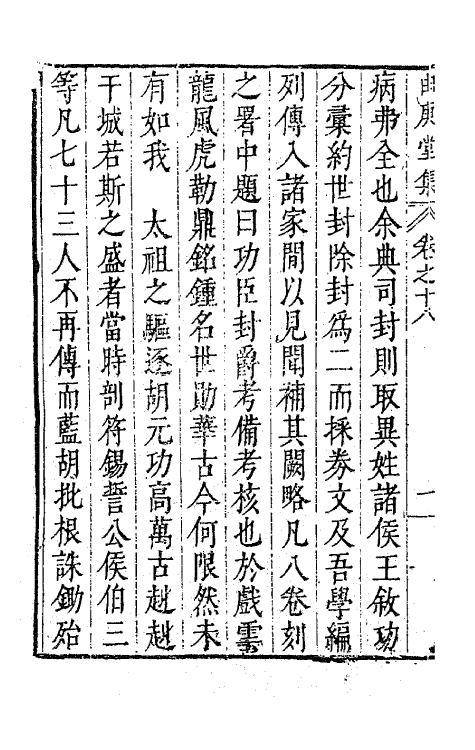 由庚堂集 卷之十八 二
病弗全也余典司封則取異姓諸侯王敘功
分彙約世封除封爲二而採劵文及吾學編
列傳入諸家間以見聞補其闕略凡八卷刻
之署中題曰功臣封爵考備考核也於戲雲
龍風虎勒鼎銘鍾名世勛華古今何限然未
有如我　太祖之驅逐胡元功高萬古赳赳
干城若斯之盛者當時剖符錫誓公侯伯三
等凡七十三人不再傳而藍胡批根誅鋤殆